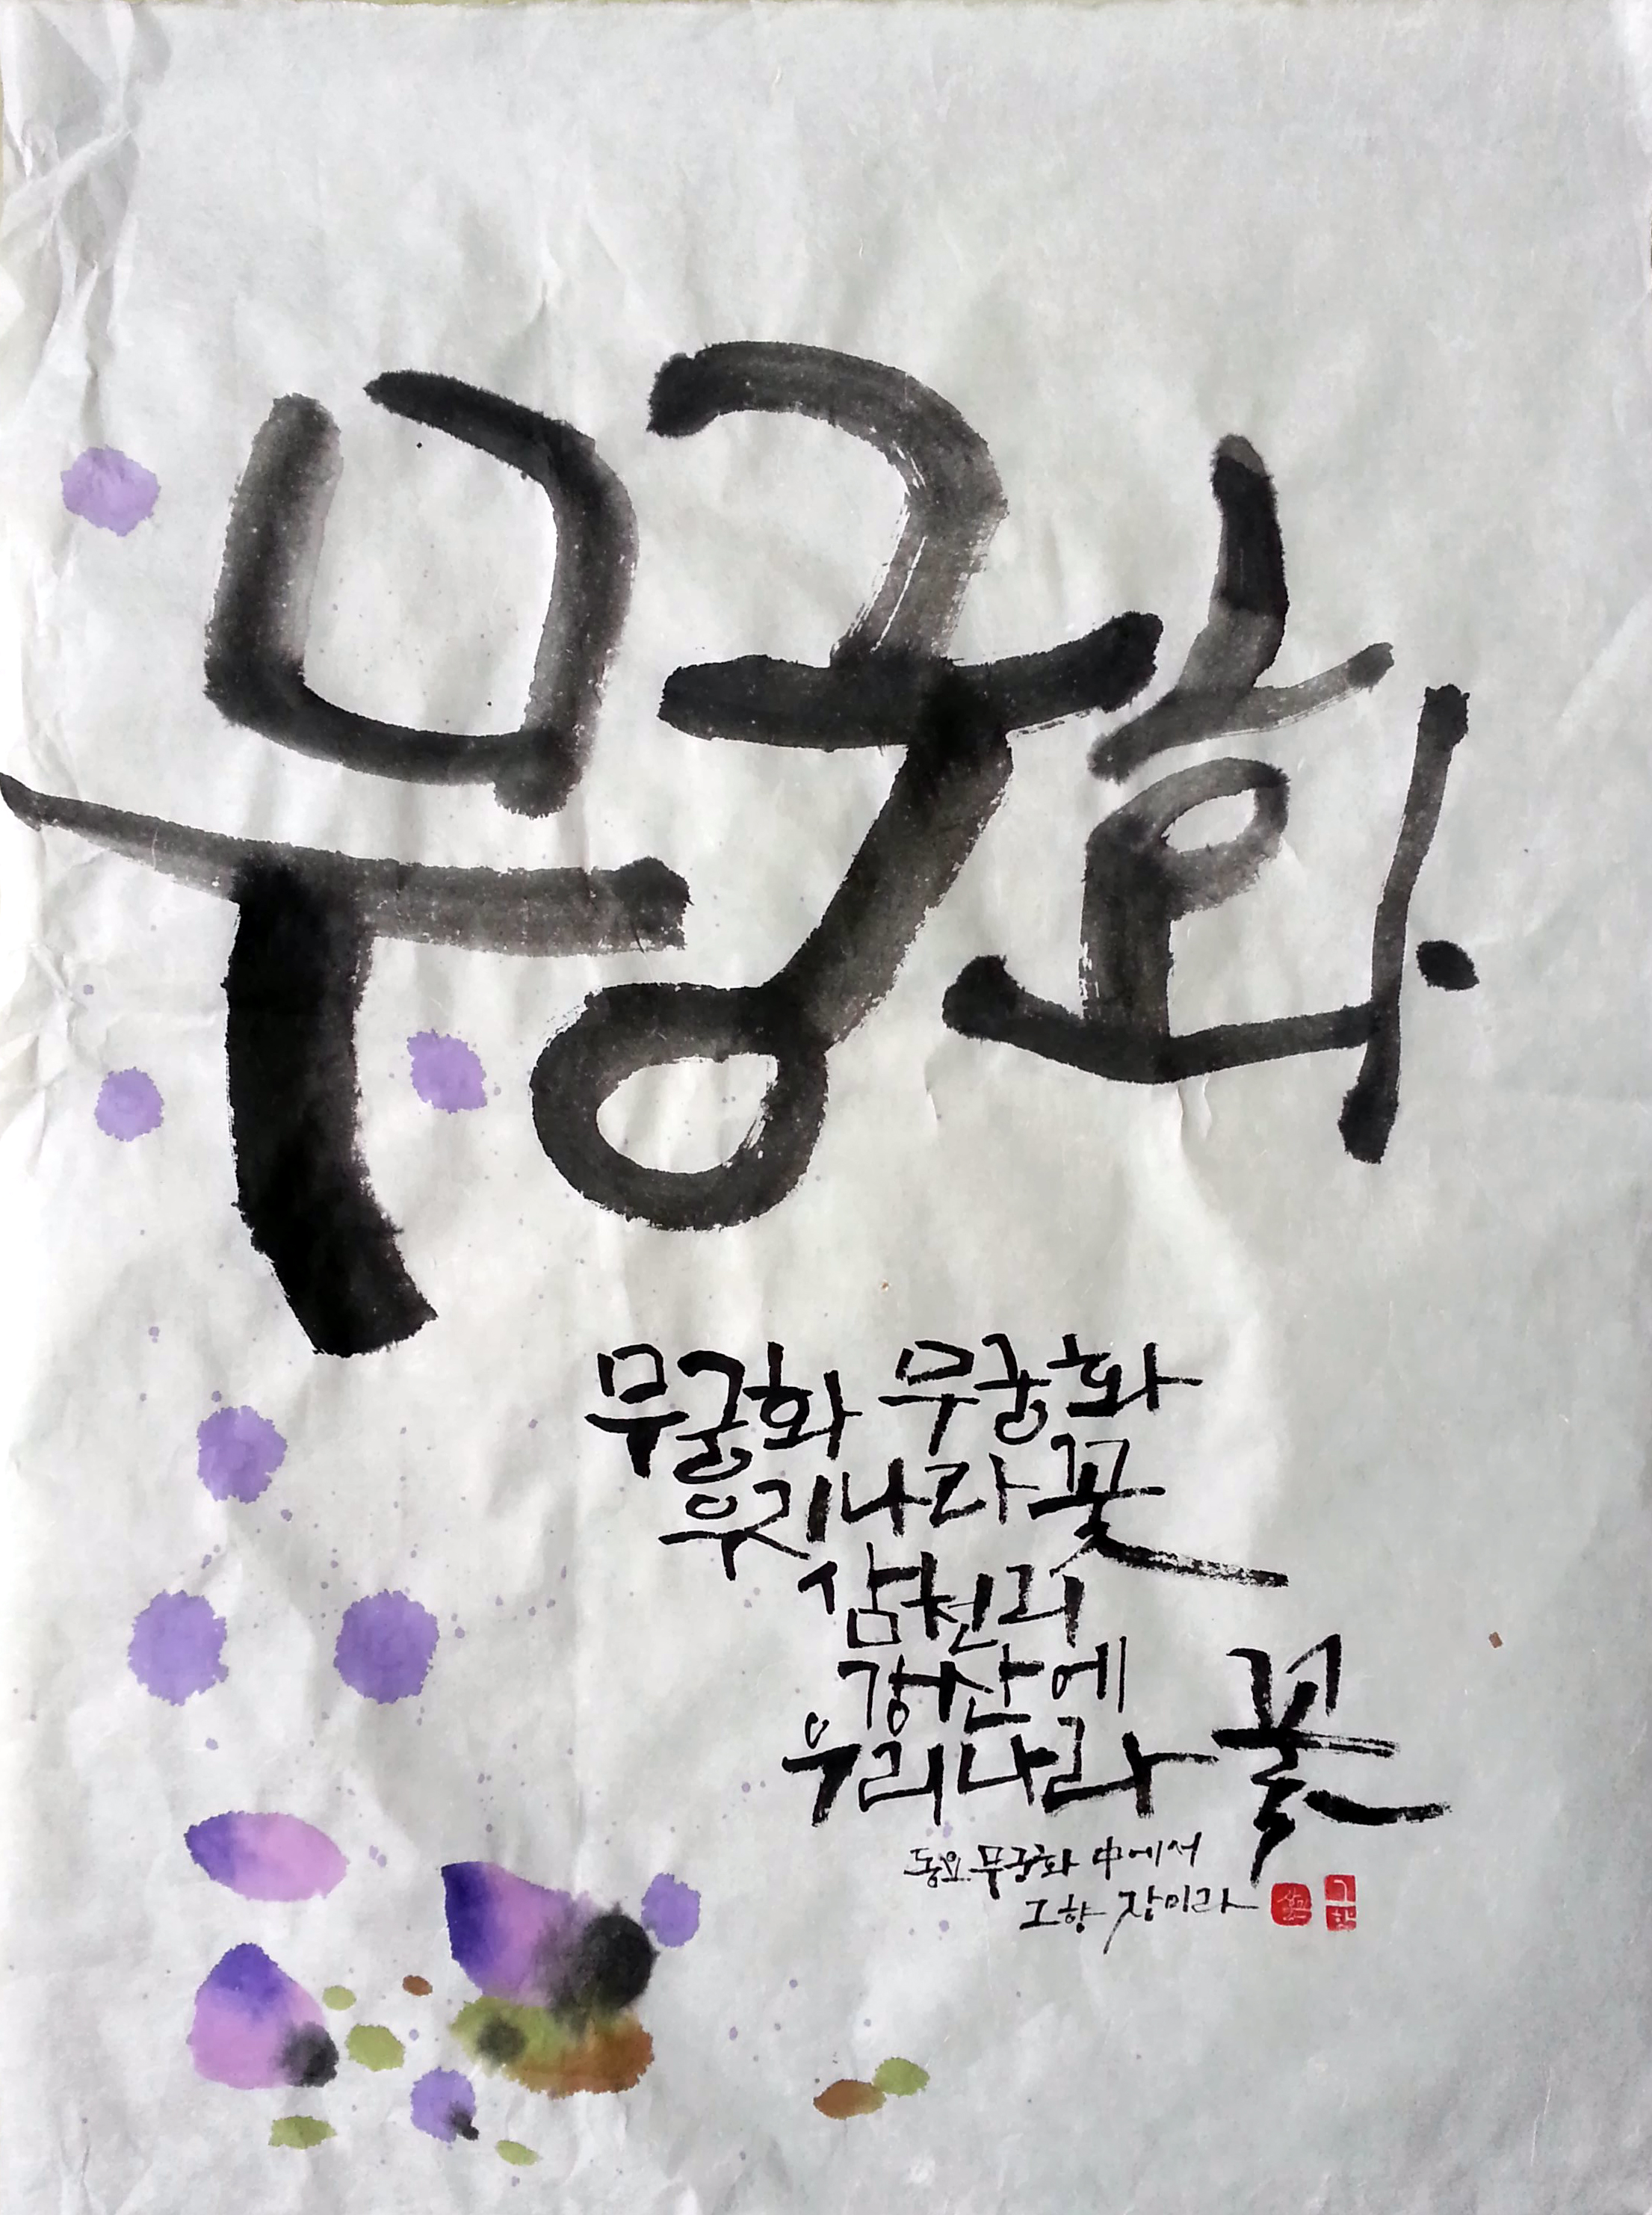 무궁화
무궁화 무궁화
우리나라꽃
삼천리
강산에
우리나라꽃
동요 무궁화 中에서
그향 장미라